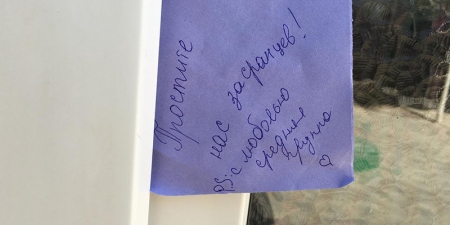 Простите
нас засранцев!
PS: с любовью
средняя
группа ♡